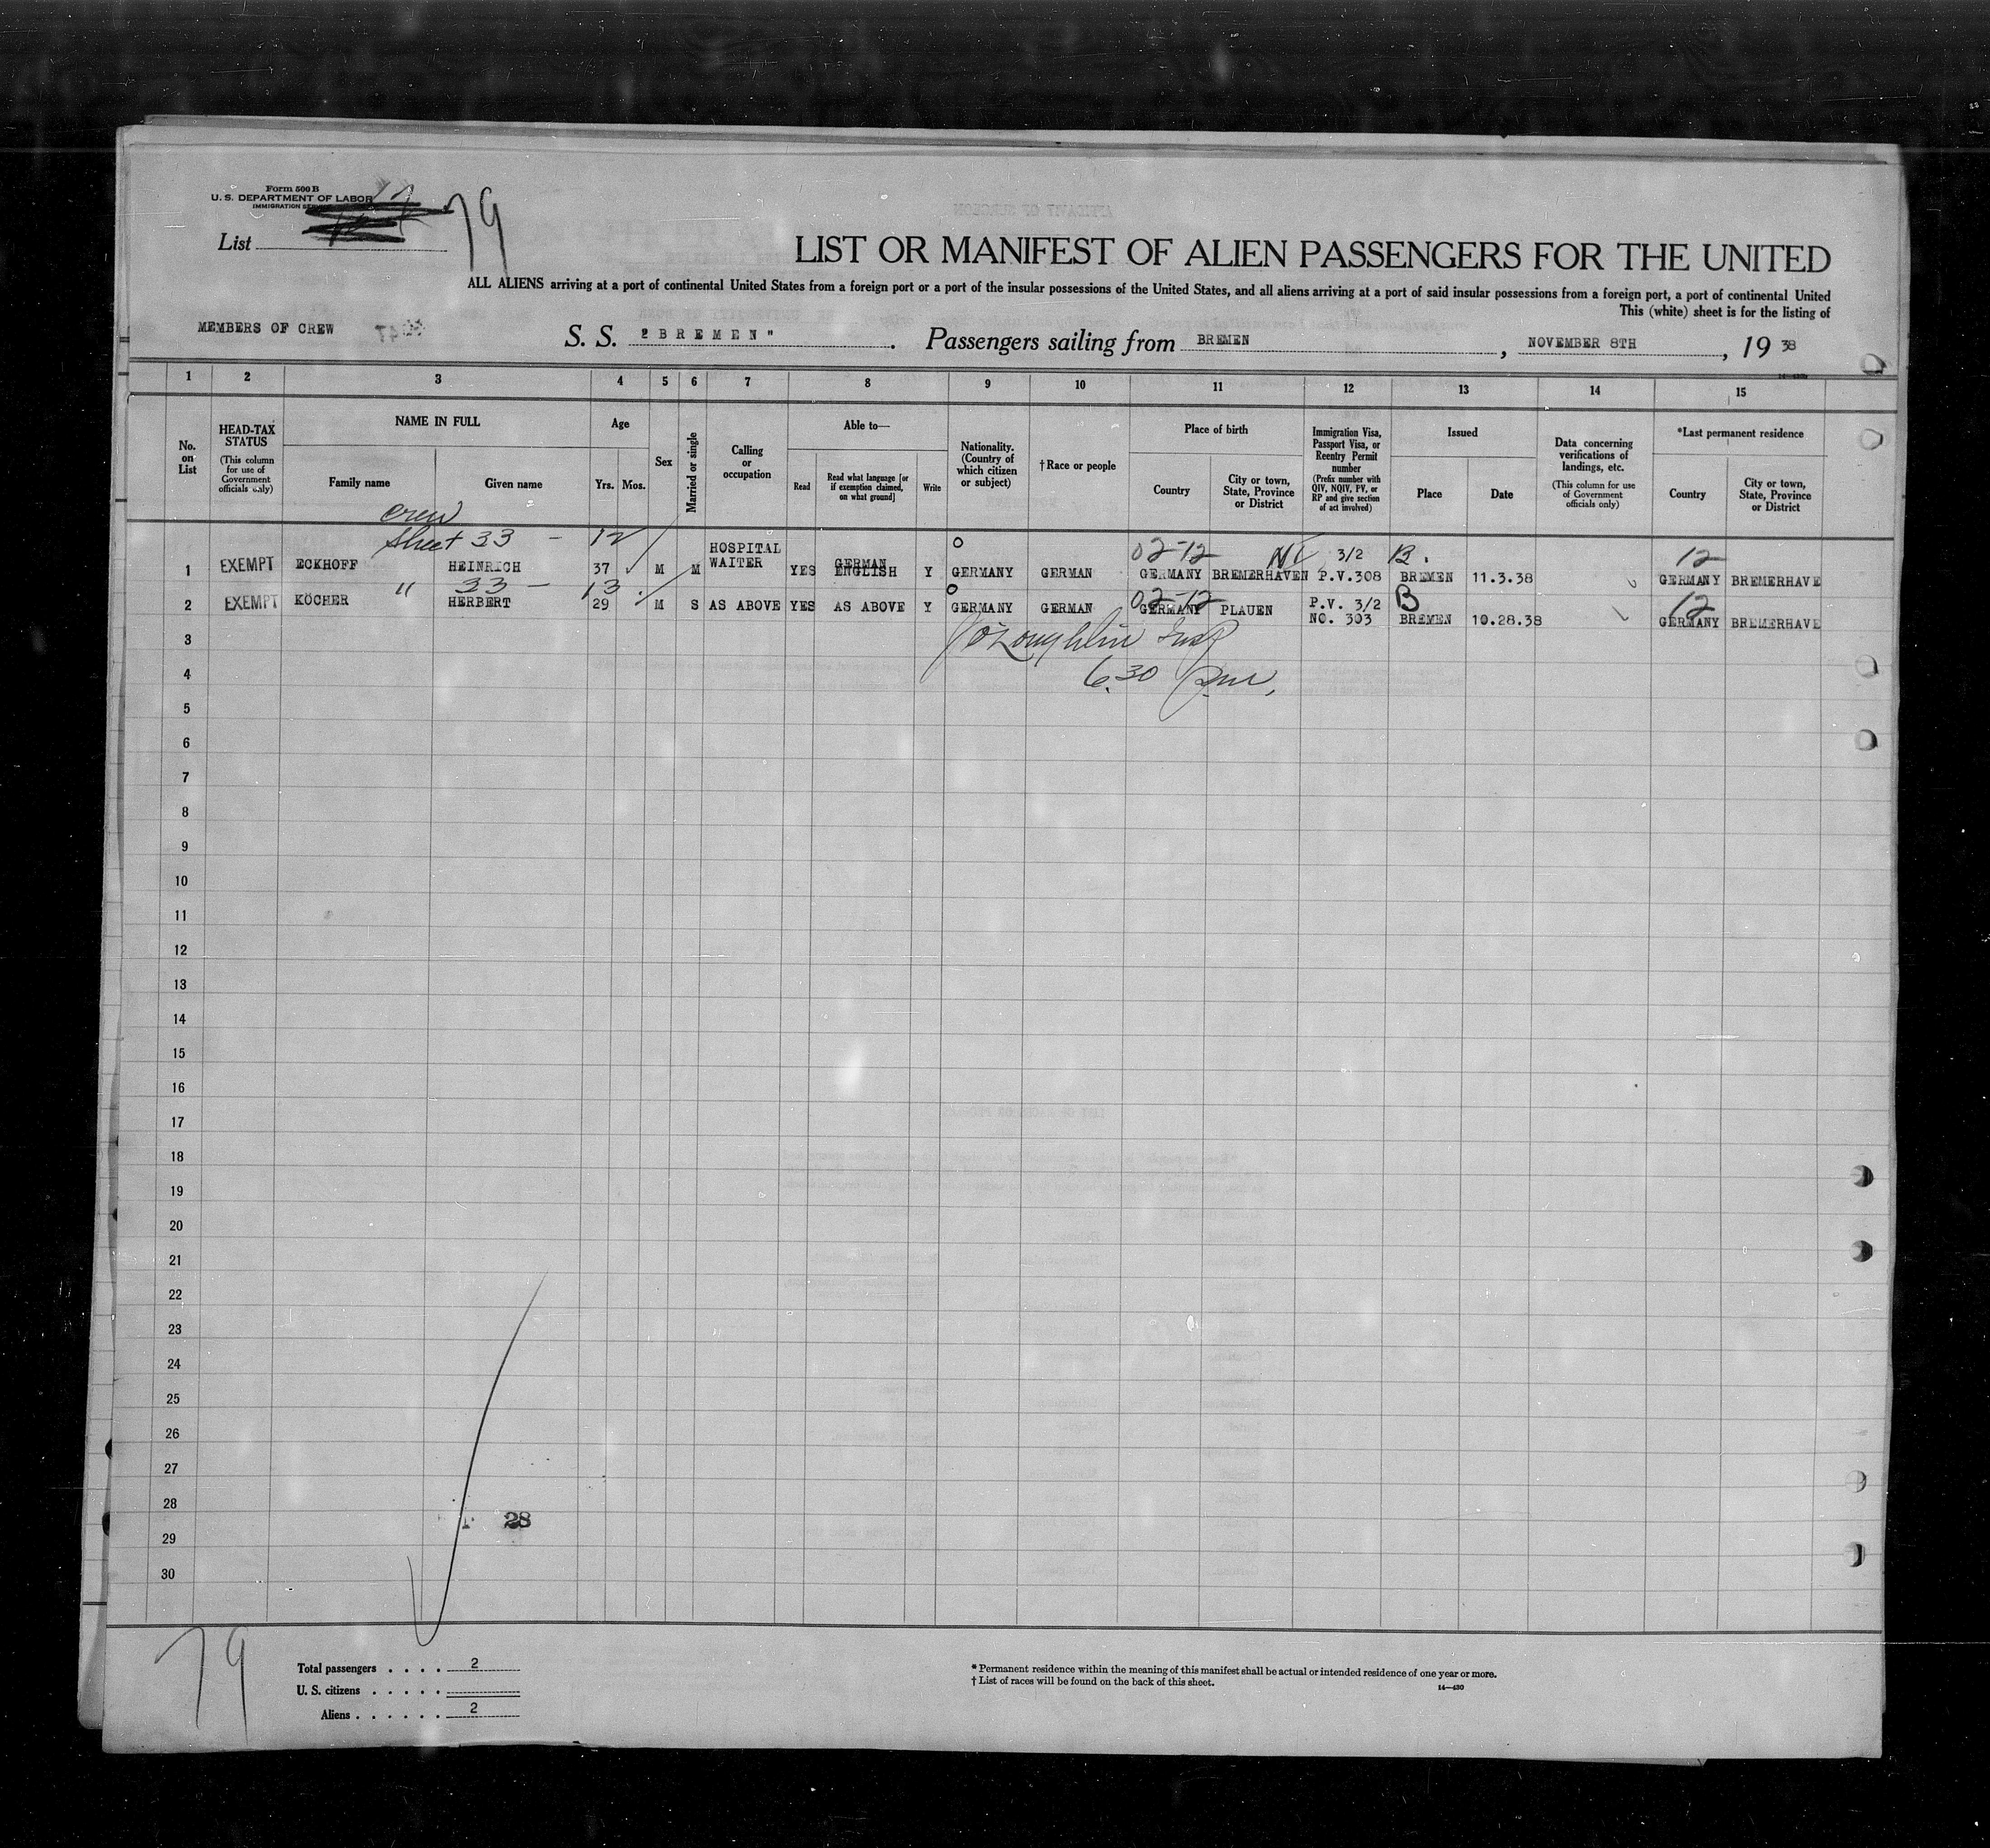 Form 500 B
U. S. DEPARTMENT OF LABOR
IMMIGRATION SERVICE
List
79
LIST OR MANIFEST OF ALIEN PASSENGERS FOR THE UNITED
ALL ALIENS arriving at a port of continental United States from a foreign port or a port of the insular possessions of the United States, and all aliens arriving at a port of said insular possessions from a foreign port, a port of continental United
This (white) sheet is for the listing of
MEMBERS OF CREW S. S. 2 B R E M E N " . Passengers sailing from BREMEN , NOVEMBER 8TH , 19 38
1 2 3 4 5 6 7 8 9 10 11 12 13 14 15
No. on List
HEAD-TAX STATUS (This column for use of Government officials only)
NAME IN FULL
Family name Given name
Age
Yrs. Mos.
Sex
Married or single
Calling or occupation
Able to—
Read
Read what language [or if exemption claimed, on what ground]
Write
Nationality. (Country of which citizen or subject)
† Race or people
Place of birth
Country
City or town, State, Province or District
Immigration Visa, Passport Visa, or Reentry Permit number (Prefix number with QIV, NQIV, PV, or RP and give section of act involved)
Issued
Place Date
Data concerning verifications of landings, etc. (This column for use of Government officials only)
*Last permanent residence
Country
City or town, State, Province or District
crew
sheet 33 - 12
02-12 3/2 B. 12
1 EXEMPT ECKHOFF HEINRICH 37 M M HOSPITAL WAITER YES GERMAN ENGLISH Y GERMANY GERMAN GERMANY BREMERHAVEN P.V.308 BREMEN 11.3.38 GERMANY BREMERHAVE
" 33 - 13
02-12 B 12
2 EXEMPT KÖCHER HERBERT 29 M S AS ABOVE YES AS ABOVE Y GERMANY GERMAN GERMANY PLAUEN P.V. 3/2 NO. 303 BREMEN 10.28.38 GERMANY BREMERHAVE
3 O'Loughlin Insp
4 6.30 pm.
5
6
7
8
9
10
11
12
13
14
15
16
17
18
19
20
21
22
23
24
25
26
27
28
28
29
30
79
Total passengers . . . . 2
U. S. citizens . . . . .
Aliens . . . . . . 2
* Permanent residence within the meaning of this manifest shall be actual or intended residence of one year or more.
† List of races will be found on the back of this sheet.
14—430